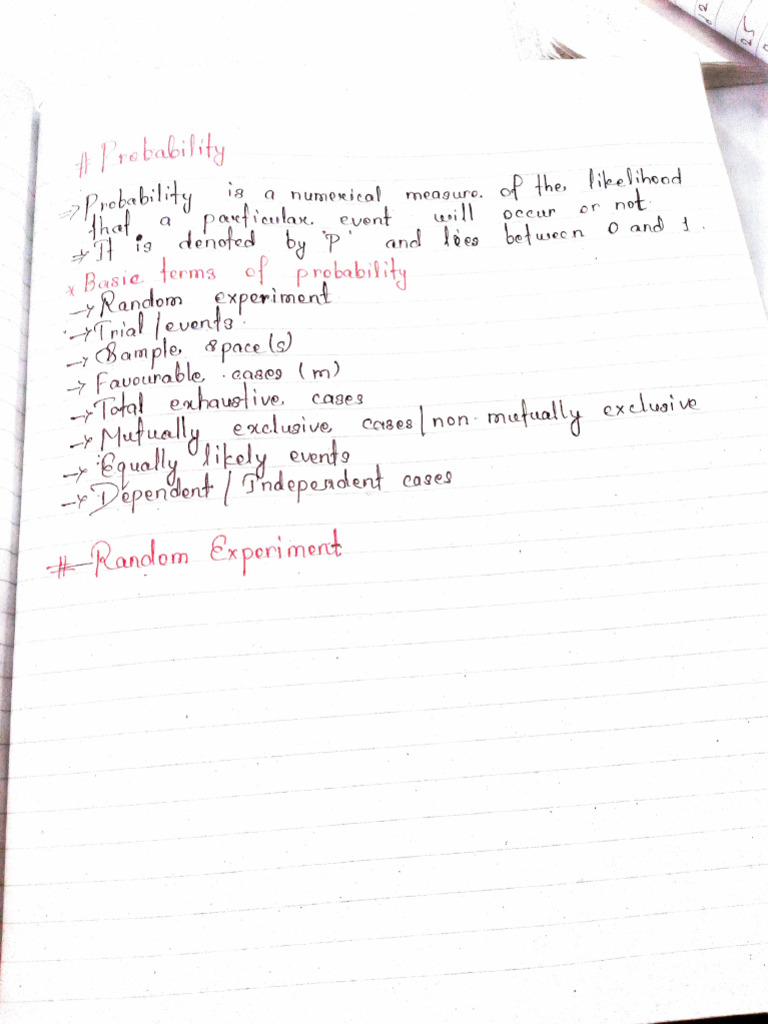 # Probability
⇒ Probability is a numerical measure of the likelihood
that a particular event will occur or not.
⇒ It is denoted by 'P' and lies between 0 and 1.
* Basic terms of probability
→ Random experiment
→ Trial/events
→ Sample space(s)
→ Favourable cases (m)
→ Total exhaustive cases
→ Mutually exclusive cases/non-mutually exclusive
→ Equally likely events
→ Dependent/Independent cases
# Random Experiment